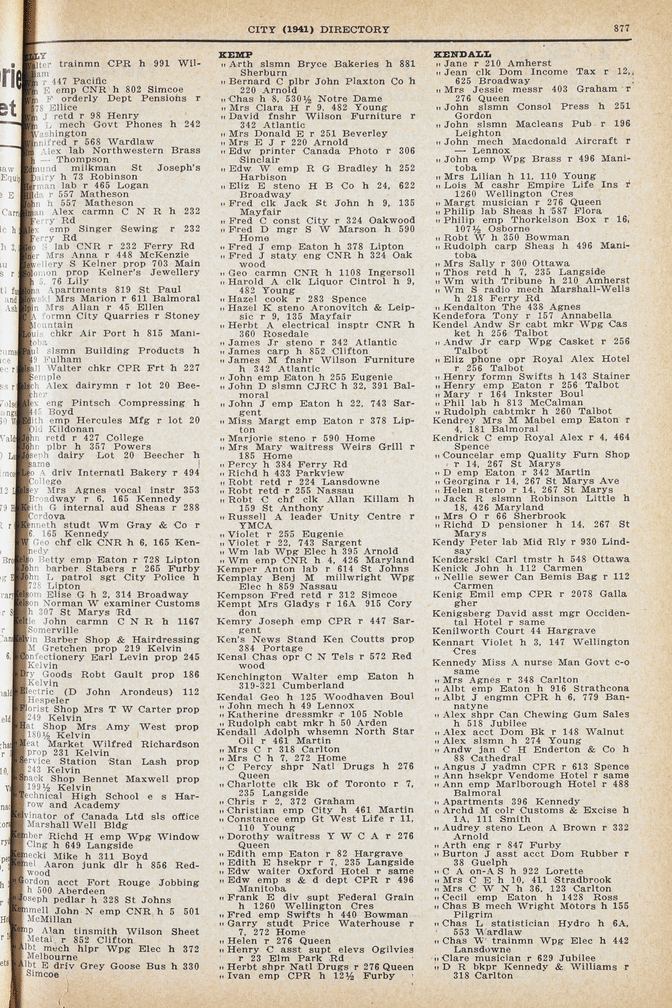 CITY (1941) DIRECTORY
877
trainmn CPR h 991 Wil-
447 Pacific
E emp CNR h 802 Simcoe
F orderly Dept Pensions r
78 Ellice
J retd r 98 Henry
L mech Govt Phones h 242
Washington
Winnifred r 568 Wardlaw
Alex lab Northwestern Brass
h — Thompson
Edmund milkman St Joseph's
Dairy h 73 Robinson
lab r 465 Logan
r 557 Matheson
h 557 Matheson
Alex carmn C N R h 232
Ferry Rd
emp Singer Sewing r 232
Ferry Rd
S lab CNR r 232 Ferry Rd
Mrs Anna r 448 McKenzie
Jewellery S Kelner prop 703 Main
Solomon prop Kelner's Jewellery
h 5, 76 Lily
Apartments 819 St Paul
Mrs Marion r 611 Balmoral
Mrs Allan r 45 Ellen
A formn City Quarries r Stoney
Mountain
Louis chkr Air Port h 815 Mani-
toba
Paul slsmn Building Products h
49 Fulham
Walter chkr CPR Frt h 227
Semple
Alex dairymn r lot 20 Bee-
cher
Alex eng Pintsch Compressing h
445 Boyd
Edith emp Hercules Mfg r lot 20
Old Kildonan
John retd r 427 College
John plbr h 357 Powers
Joseph dairy Lot 20 Beecher h
same
Leo A driv Internatl Bakery r 494
College
Kelsey Mrs Agnes vocal instr 353
Broadway r 6, 165 Kennedy
Keith G internal aud Sheas r 288
Cordova
Kenneth studt Wm Gray & Co r
6, 165 Kennedy
W Geo chf clk CNR h 6, 165 Ken-
nedy
Betty emp Eaton r 728 Lipton
John barber Stabers r 265 Furby
John L patrol sgt City Police h
728 Lipton
Kelsom Elise G h 2, 314 Broadway
Kelson Norman W examiner Customs
h 307 St Marys Rd
Keltie John carmn C N R h 1167
Somerville
Kelvin Barber Shop & Hairdressing
M Gretchen prop 219 Kelvin
Confectionery Earl Levin prop 245
Kelvin
Dry Goods Robt Gault prop 186
Kelvin
Electric (D John Arondeus) 112
Hespeler
Florist Shop Mrs T W Carter prop
249 Kelvin
Hat Shop Mrs Amy West prop
180½ Kelvin
Meat Market Wilfred Richardson
prop 231 Kelvin
Service Station Stan Lash prop
243 Kelvin
Snack Shop Bennet Maxwell prop
199½ Kelvin
Technical High School e s Har-
row and Academy
Kelvinator of Canada Ltd sls office
Marshall Well Bldg
Kember Richd H emp Wpg Window
Clng h 649 Langside
Kemecki Mike h 311 Boyd
Kemel Aaron junk dlr h 856 Red-
wood
Gordon acct Fort Rouge Jobbing
h 500 Aberdeen
Joseph pedlar h 328 St Johns
Kemmell John N emp CNR h 5 501
McMillan
Kemp Alan tinsmith Wilson Sheet
Metal r 852 Clifton
Albt mech hlpr Wpg Elec h 372
Melbourne
Albt E driv Grey Goose Bus h 330
Simcoe
KEMP
„ Arth slsmn Bryce Bakeries h 881
Sherburn
„ Bernard C plbr John Plaxton Co h
220 Arnold
„ Chas h 8, 530½ Notre Dame
„ Mrs Clara H r 9, 482 Young
„ David fnshr Wilson Furniture r
342 Atlantic
„ Mrs Donald E r 251 Beverley
„ Mrs E J r 220 Arnold
„ Edw printer Canada Photo r 306
Sinclair
„ Edw W emp R G Bradley h 252
Harbison
„ Eliz E steno H B Co h 24, 622
Broadway
„ Fred clk Jack St John h 9, 135
Mayfair
„ Fred C const City r 324 Oakwood
„ Fred D mgr S W Marson h 590
Home
„ Fred J emp Eaton h 378 Lipton
„ Fred J staty eng CNR h 324 Oak
wood
„ Geo carmn CNR h 1108 Ingersoll
„ Harold A clk Liquor Cintrol h 9,
482 Young
„ Hazel cook r 283 Spence
„ Hazel K steno Aronovitch & Leip-
sic r 9, 135 Mayfair
„ Herbt A electrical insptr CNR h
360 Rosedale
„ James Jr steno r 342 Atlantic
„ James carp h 852 Clifton
„ James M fnshr Wilson Furniture
h 342 Atlantic
„ John emp Eaton h 255 Eugenie
„ John D slsmn CJRC h 32, 391 Bal-
moral
„ John J emp Eaton h 22, 743 Sar-
gent
„ Miss Margt emp Eaton r 378 Lip-
ton
„ Marjorie steno r 590 Home
„ Mrs Mary waitress Weirs Grill r
185 Home
„ Percy h 384 Ferry Rd
„ Richd h 433 Parkview
„ Robt retd r 224 Lansdowne
„ Robt retd r 255 Nassau
„ Robt C chf clk Allan Killam h
159 St Anthony
„ Russell A leader Unity Centre r
YMCA
„ Violet r 255 Eugenie
„ Violet r 22, 743 Sargent
„ Wm lab Wpg Elec h 395 Arnold
„ Wm emp CNR h 4, 426 Maryland
Kemper Anton lab r 614 St Johns
Kemplay Benj M millwright Wpg
Elec h 859 Nassau
Kempson Fred retd r 312 Simcoe
Kempt Mrs Gladys r 16A 915 Cory
don
Kemry Joseph emp CPR r 447 Sar-
gent
Ken's News Stand Ken Coutts prop
384 Portage
Kenal Chas opr C N Tels r 572 Red
wood
Kenchington Walter emp Eaton h
319-321 Cumberland
Kendal Geo h 125 Woodhaven Boul
„ John mech h 49 Lennox
„ Katherine dressmkr r 105 Noble
„ Rudolph cabt mkr h 50 Arden
Kendall Adolph whsemn North Star
Oil r 461 Martin
„ Mrs C r 318 Carlton
„ Mrs C h 7, 272 Home
„ C Percy shpr Natl Drugs h 276
Queen
„ Charlotte clk Bk of Toronto r 7,
235 Langside
„ Chris r 2, 372 Graham
„ Christian emp City h 461 Martin
„ Constance emp Gt West Life r 11,
110 Young
„ Dorothy waitress Y W C A r 276
Queen
„ Edith emp Eaton r 82 Hargrave
„ Edith E hsekpr r 7, 235 Langside
„ Edw waiter Oxford Hotel r same
„ Edw emp s & d dept CPR r 496
Manitoba
„ Frank E div supt Federal Grain
h 1260 Wellington Cres
„ Fred emp Swifts h 440 Bowman
„ Garry studt Price Waterhouse r
7, 272 Home
„ Helen r 276 Queen
„ Henry C asst supt elevs Ogilvies
r 23 Elm Park Rd
„ Herbt shpr Natl Drugs r 276 Queen
„ Ivan emp CPR h 12½ Furby
KENDALL
„ Jane r 210 Amherst
„ Jean clk Dom Income Tax r 12,
625 Broadway
„ Mrs Jessie messr 403 Graham r
276 Queen
„ John slsmn Consol Press h 251
Gordon
„ John slsmn Macleans Pub r 196
Leighton
„ John mech Macdonald Aircraft r
— Lennox
„ John emp Wpg Brass r 496 Mani-
toba
„ Mrs Lilian h 11, 110 Young
„ Lois M cashr Empire Life Ins r
1260 Wellington Cres
„ Margt musician r 276 Queen
„ Philip lab Sheas h 587 Flora
„ Philip emp Thorkelson Box r 16,
107½ Osborne
„ Robt W h 350 Bowman
„ Rudolph carp Sheas h 496 Mani-
toba
„ Mrs Sally r 300 Ottawa
„ Thos retd h 7, 235 Langside
„ Wm with Tribune h 210 Amherst
„ Wm S radio mech Marshall-Wells
h 218 Ferry Rd
„ Kendalton The 438 Agnes
Kendefora Tony r 157 Annabella
Kendel Andw Sr cabt mkr Wpg Cas
ket h 256 Talbot
„ Andw Jr carp Wpg Casket r 256
Talbot
„ Eliz phone opr Royal Alex Hotel
r 256 Talbot
„ Henry formn Swifts h 143 Stainer
„ Henry emp Eaton r 256 Talbot
„ Mary r 164 Inkster Boul
„ Phil lab h 813 McCalman
„ Rudolph cabtmkr h 260 Talbot
Kendrey Mrs M Mabel emp Eaton r
4, 181 Balmoral
Kendrick C emp Royal Alex r 4, 464
Spence
„ Councelar emp Quality Furn Shop
r 14, 267 St Marys
„ D emp Eaton r 342 Martin
„ Georgina r 14, 267 St Marys Ave
„ Helen steno r 14, 267 St Marys
„ Jack R slsmn Robinson Little h
18, 426 Maryland
„ Mrs O r 66 Sherbrook
„ Richd D pensioner h 14, 267 St
Marys
Kendy Peter lab Mid Rly r 930 Lind-
say
Kendzerski Carl tmstr h 548 Ottawa
Kenick John h 112 Carmen
„ Nellie sewer Can Bemis Bag r 112
Carmen
Kenig Emil emp CPR r 2078 Galla
gher
Kenigsberg David asst mgr Occiden-
tal Hotel r same
Kenilworth Court 44 Hargrave
Kennart Violet h 3, 147 Wellington
Cres
Kennedy Miss A nurse Man Govt c-o
same
„ Mrs Agnes r 348 Carlton
„ Albt emp Eaton h 916 Strathcona
„ Albt J engmn CPR h 6, 779 Ban-
natyne
„ Alex shpr Can Chewing Gum Sales
h 518 Jubilee
„ Alex acct Dom Bk r 148 Walnut
„ Alex slsmn h 274 Young
„ Andw jan C H Enderton & Co h
88 Cathedral
„ Angus J yadmn CPR r 613 Spence
„ Ann hsekpr Vendome Hotel r same
„ Ann emp Marlborough Hotel r 488
Balmoral
„ Apartments 396 Kennedy
„ Archd M colr Customs & Excise h
1A, 111 Smith
„ Audrey steno Leon A Brown r 332
Arnold
„ Arth eng r 847 Furby
„ Burton J asst acct Dom Rubber r
38 Guelph
„ C A on-A S h 922 Lorette
„ Mrs C E h 10, 411 Stradbrook
„ Mrs C W N h 36, 123 Carlton
„ Cecil emp Eaton h 1428 Ross
„ Chas B mech Wright Motors h 155
Pilgrim
„ Chas L statistician Hydro h 6A,
553 Wardlaw
„ Chas W trainmn Wpg Elec h 442
Lansdowne
„ Clare musician r 629 Jubilee
„ D R bkpr Kennedy & Williams r
318 Carlton